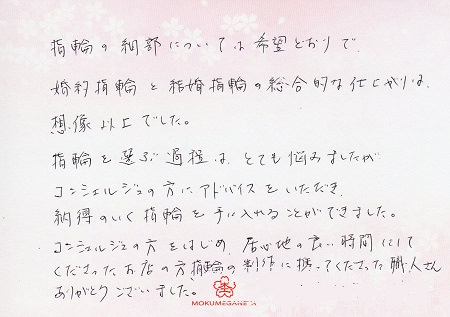 指輪の細部については希望どおりで、
婚約指輪と結婚指輪の総合的な仕上がりは、
想像以上でした。
指輪を選ぶ過程は、とても悩みましたが
コンシェルジュの方にアドバイスをいただき、
納得のいく指輪を手に入れることができました。
コンシェルジュの方をはじめ、居心地の良い時間にして
くださったお店の方、指輪の制作に携ってくださった職人さん
ありがとうございました。
MOKUMEGANEYA